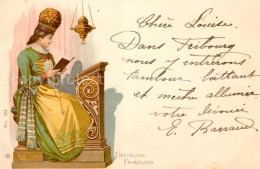 Chère Louise.
Dans Fribourg
nous y entrerons
tambour battant
et mèche allumée
votre dévouée
E. Barraud.
FREIBURG
FRIBOURG